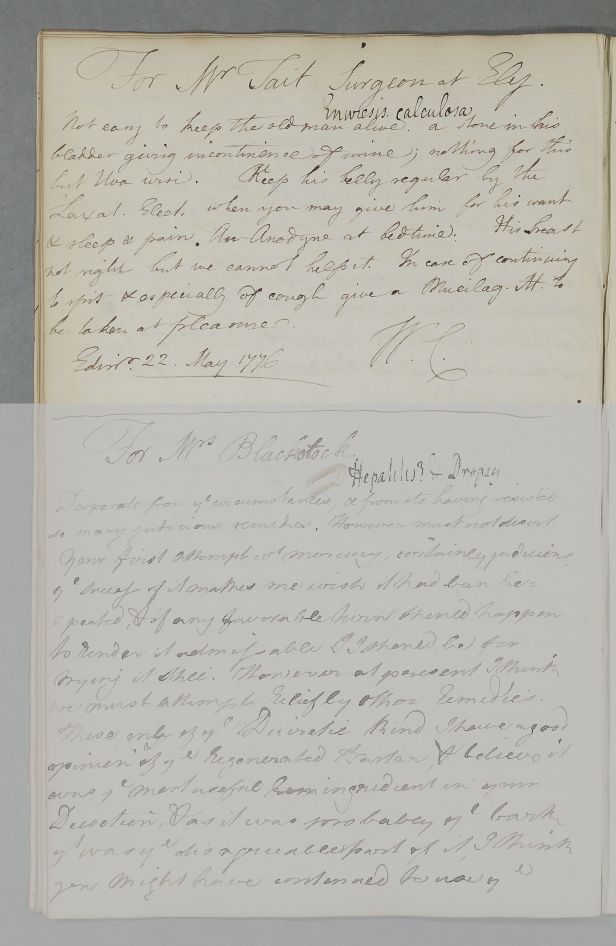 For Mr Tait Surgeon at Ely.
Enuresis calculosa
Not easy to keep the old man alive. a stone in his
bladder giving incontinence of urine; nothing for this
but Uva ursi. Keep his belly regular by the
Laxat. Elect. when you may give him for his want
of sleep & pain An Anodyne at bedtime. His breast
not right but we cannot help it. In case of continuing
to spit & especially of cough give a Mucilag. M. to
be taken at pleasure.
Edinr. 22. May 1776 W.C.
For Mrs Blackstock.
Hepatitis? & Dropsy
Desperate from ye circumstances, & from its having resisted
so many judicious remedies. However must not desert
Your first attempt wt mercury, certainly judicious,
ye success of it makes me wish it had been re=
=peated, & if any favorable turn should happen
to render it admissable I should be for
trying it still. However at present I think
we must attempt relief by other remedies.
These only of ye Diuretic kind I have a good
opinion of ye Regenerated Tartar & believe it
was ye most useful ingredient in your
Decoction, & as it was probably ye bark
yt was ye disagreeable part of it, I think
you might have continued to use ye